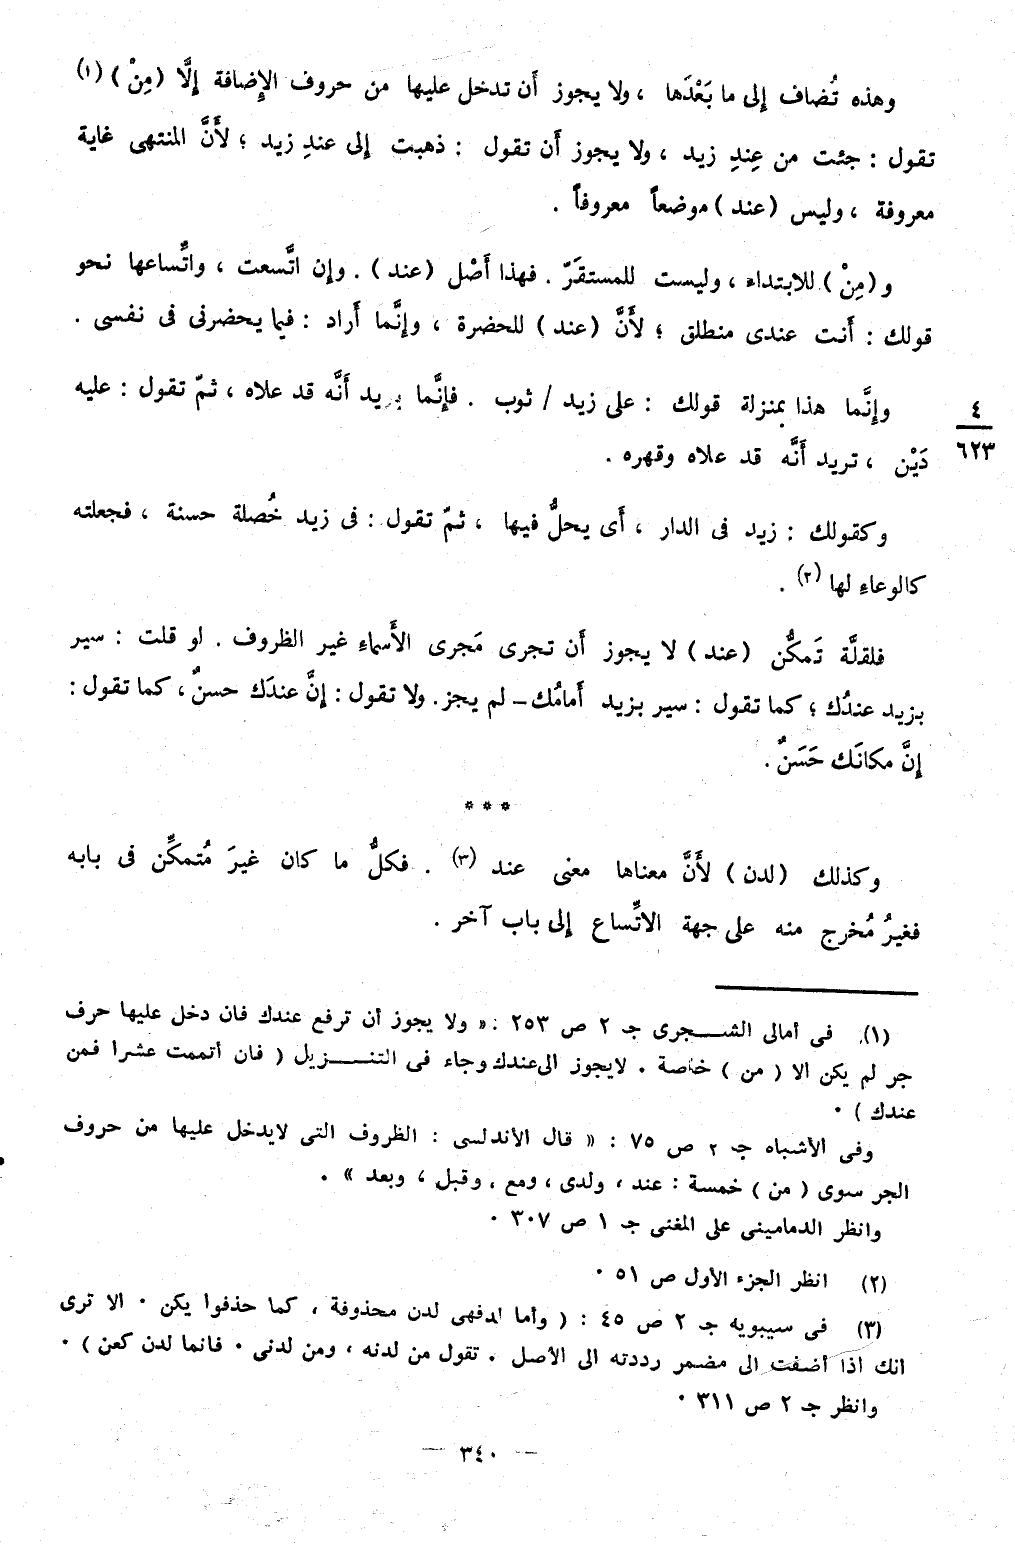 وهذه تُضاف إلى ما بَعْدَها ، ولا يجوز أَن تدخل عليها من حروف الإِضافة إِلَّا (مِنْ) (١)
تقول : جئت من عِندِ زيد ، ولا يجوز أَن تقول : ذهبت إلى عندِ زيد ؛ لأَنَّ المنتهى غاية
معروفة ، وليس (عند) موضعاً معروفاً .
و (مِنْ) للابتداء ، وليست للمستقَرّ . فهذا أَصْل (عند) . وإن اتَّسعت ، واتِّساعها نحو
قولك : أَنت عندى منطلق ؛ لأَنَّ (عند) للحضرة ، وإنَّما أَراد : فيما يحضرنى فى نفسى .
وإنَّما هذا بمنزلة قولك : على زيد / ثوب . فإنَّما يريد أَنَّه قد علاه ، ثمّ تقول : عليه
٤
٦٢٣
دَيْن ، تريد أَنَّه قد علاه وقهره .
وكقولك : زيد فى الدار ، أَى يحلُّ فيها ، ثمّ تقول : فى زيد خُصلة حسنة ، فجعلته
كالوعاءِ لها (٢) .
فلقلَّة تَمكُّن (عند) لا يجوز أَن تجرى مَجرى الأَسماءِ غير الظروف . لو قلت : سير
بزيد عندُك ؛ كما تقول : سير بزيد أَمامُك – لم يجز . ولا تقول : إنَّ عندَك حسنٌ ، كما تقول :
إنَّ مكانَك حَسَنٌ .
* * *
وكذلك (لدن) لأَنَّ معناها معنى عند (٣) . فكلُّ ما كان غيرَ مُتمكِّن فى بابه
فغيرُ مُخرج منه على جهة الاتِّساع إلى باب آخر .
(١) فى أمالى الشجرى جـ ٢ ص ٢٥٣ : « ولا يجوز أن ترفع عندك فان دخل عليها حرف
جر لم يكن الا ( من ) خاصة . لايجوز الى عندك وجاء فى التنزيل ( فان أتممت عشرا فمن
عندك ) .
وفى الأشباه جـ ٢ ص ٧٥ : « قال الأندلسى : الظروف التى لايدخل عليها من حروف
الجر سوى ( من ) خمسة : عند ، ولدى ، ومع ، وقبل ، وبعد » .
وانظر الدمامينى على المغنى جـ ١ ص ٣٠٧ .
(٢) انظر الجزء الأول ص ٥١ .
(٣) فى سيبويه جـ ٢ ص ٤٥ : ( وأما لد فهى لدن محذوفة ، كما حذفوا يكن . الا ترى
انك اذا أضفت الى مضمر رددته الى الأصل . تقول من لدنه ، ومن لدنى . فانما لدن كعن ) .
وانظر جـ ٢ ص ٣١١ .
— ٣٤٠ —